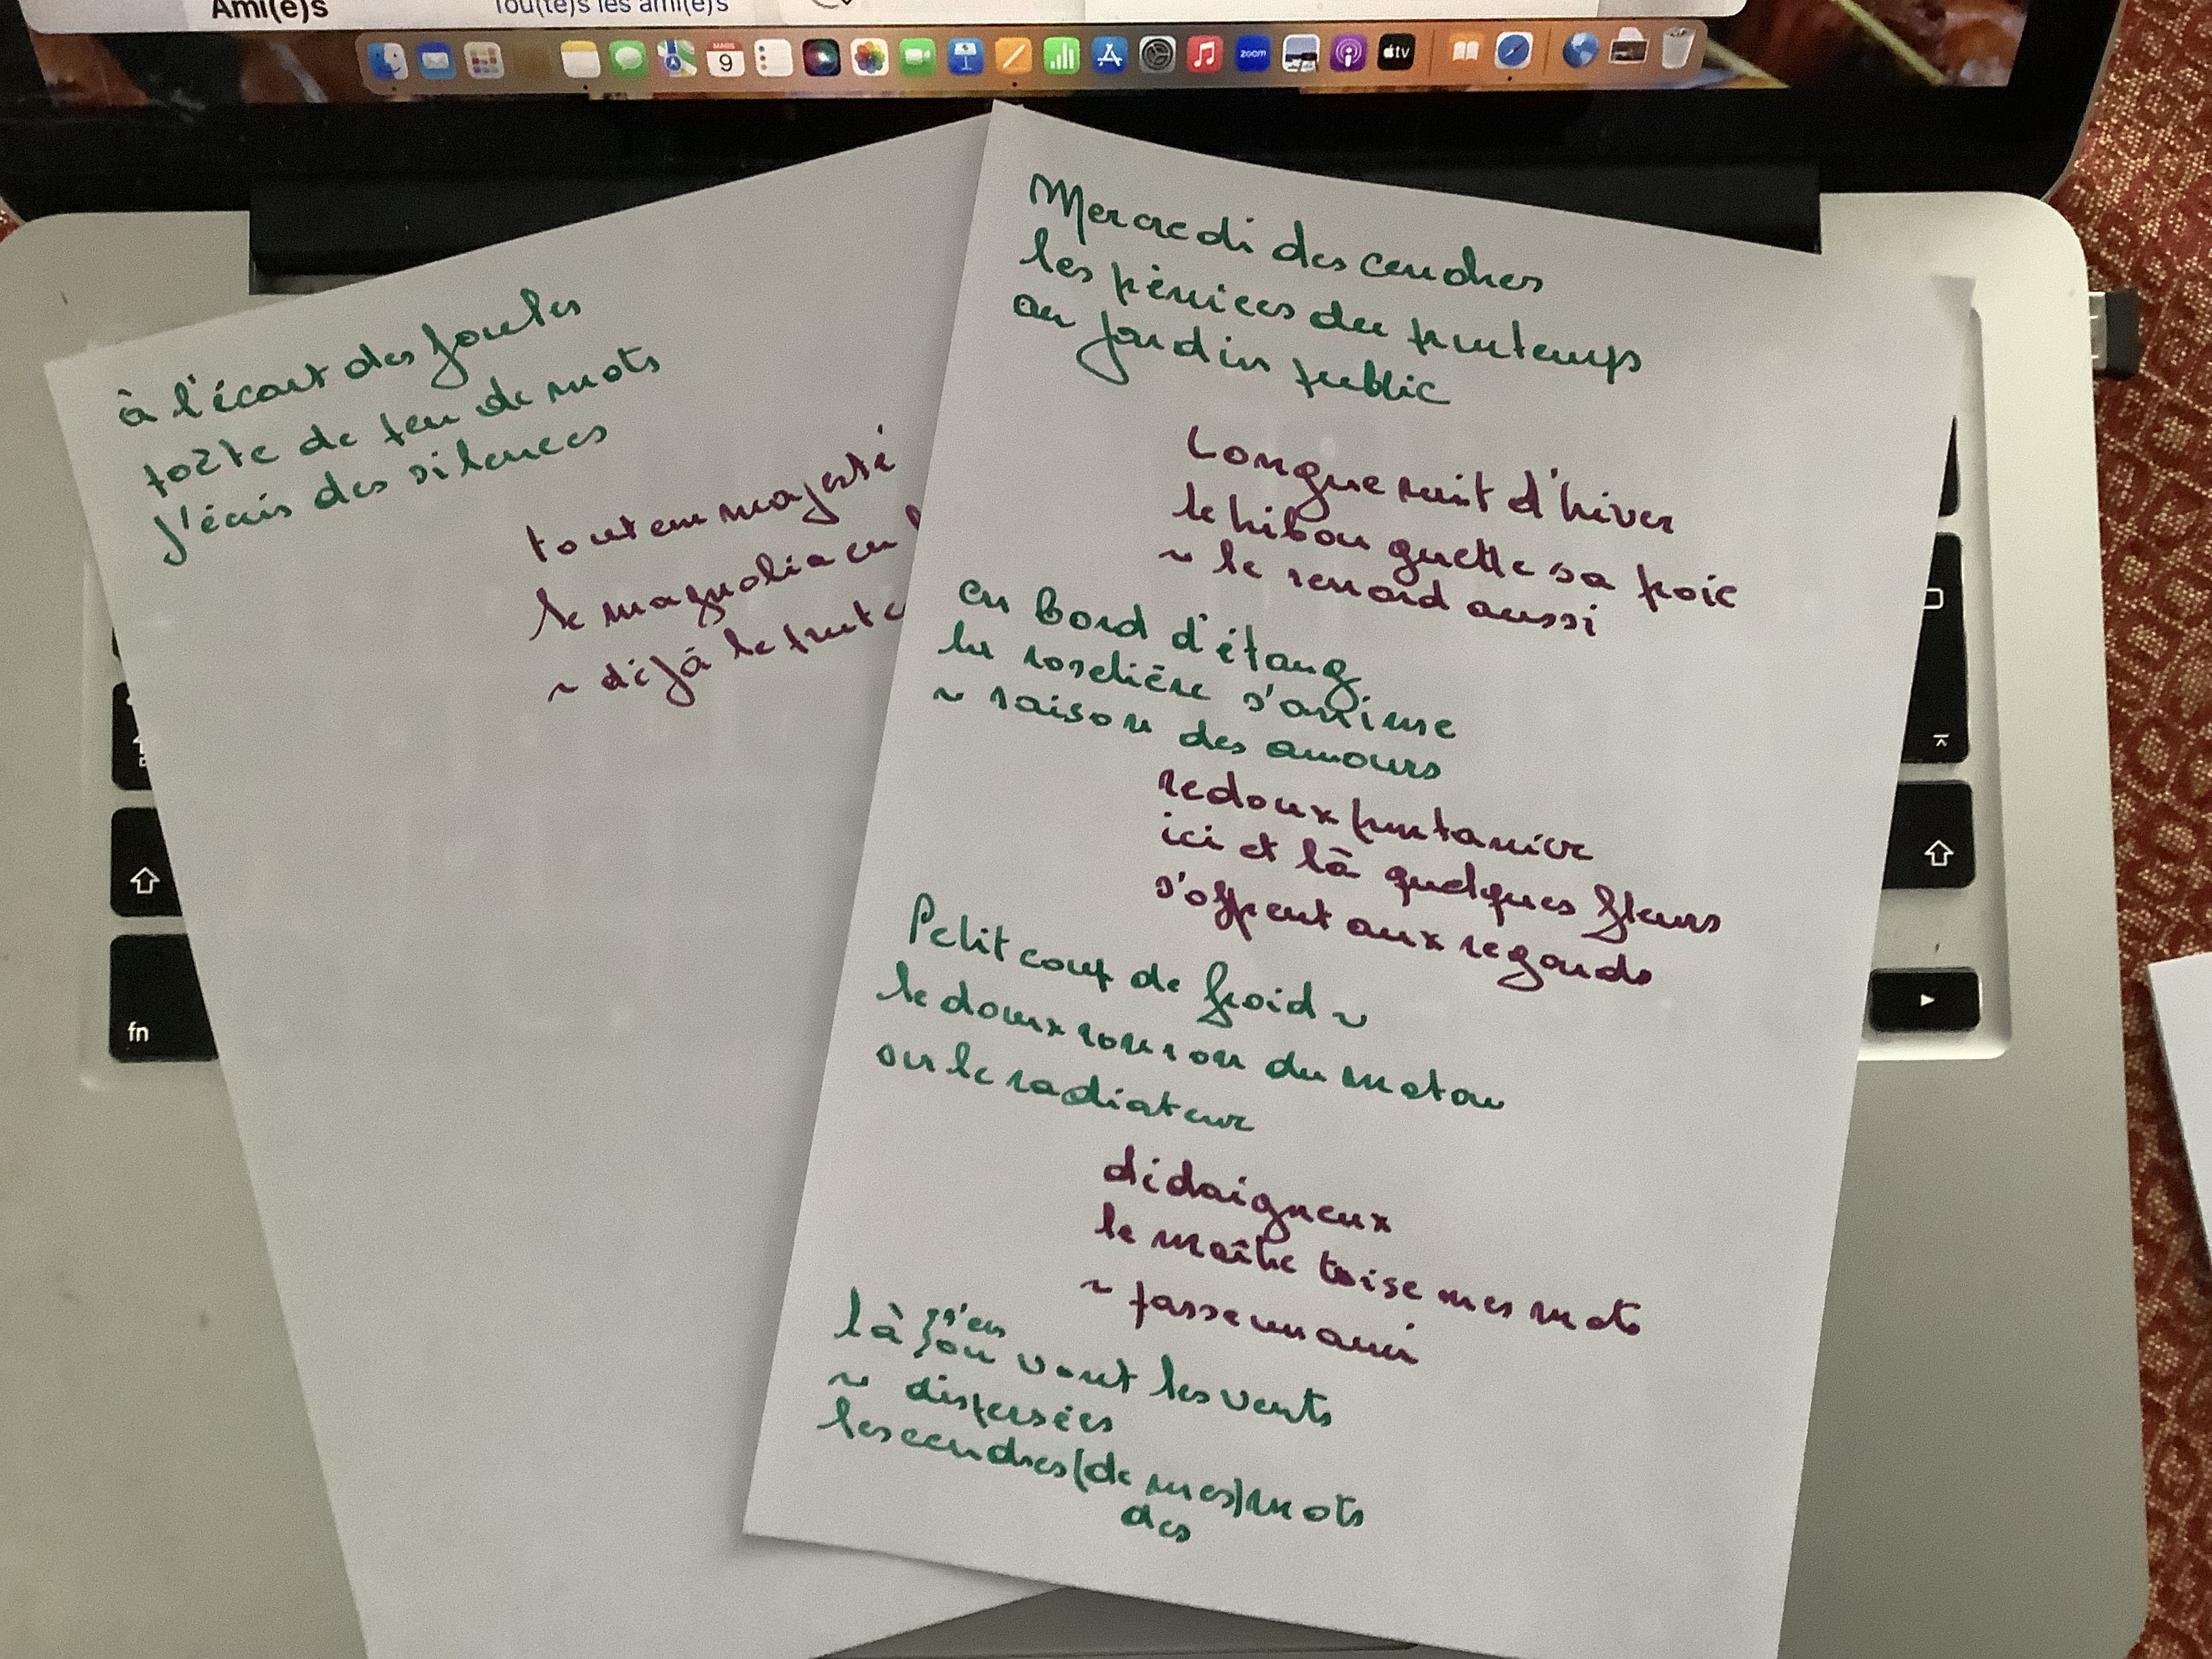 Ami(e)s
Tou(te)s les ami(e)s
MARS
9
zoom
tv
à l'écart des foules
poète de peu de mots
j'écris des silences
tout en majesté
le magnolia en
~ déjà le printe
Mercredi des cendres
les prémices du printemps
au jardin public
Longue nuit d'hiver
le hibou guette sa proie
~ le renard aussi
en bord d'étang
la roselière s'anime
~ saison des amours
redoux printanier
ici et là quelques fleurs
s'offrent aux regards
Petit coup de froid ~
le doux ronron du matou
sur le radiateur
dédaigneux
le maître toise mes mots
~ passe un ami
là { s'en
où vont les vents
~ dispersées
les cendres (de mes) mots
des
fn